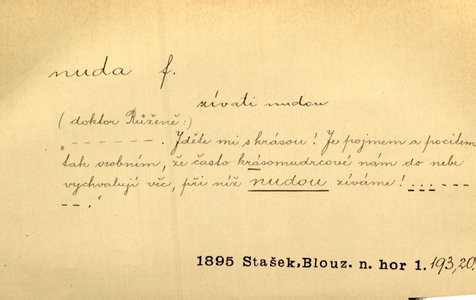 nuda f.
zívati nudou
(doktor Růženě:)
"- - - - - - -. Jděte mi s krásou! Je pojmem a pocitem
tak osobním, že často krásomudrcové nám do nebe
vychvalují věc, při níž nudou zíváme! ... - - -
- -."
1895 Stašek, Blouz. n. hor 1. 193,20.